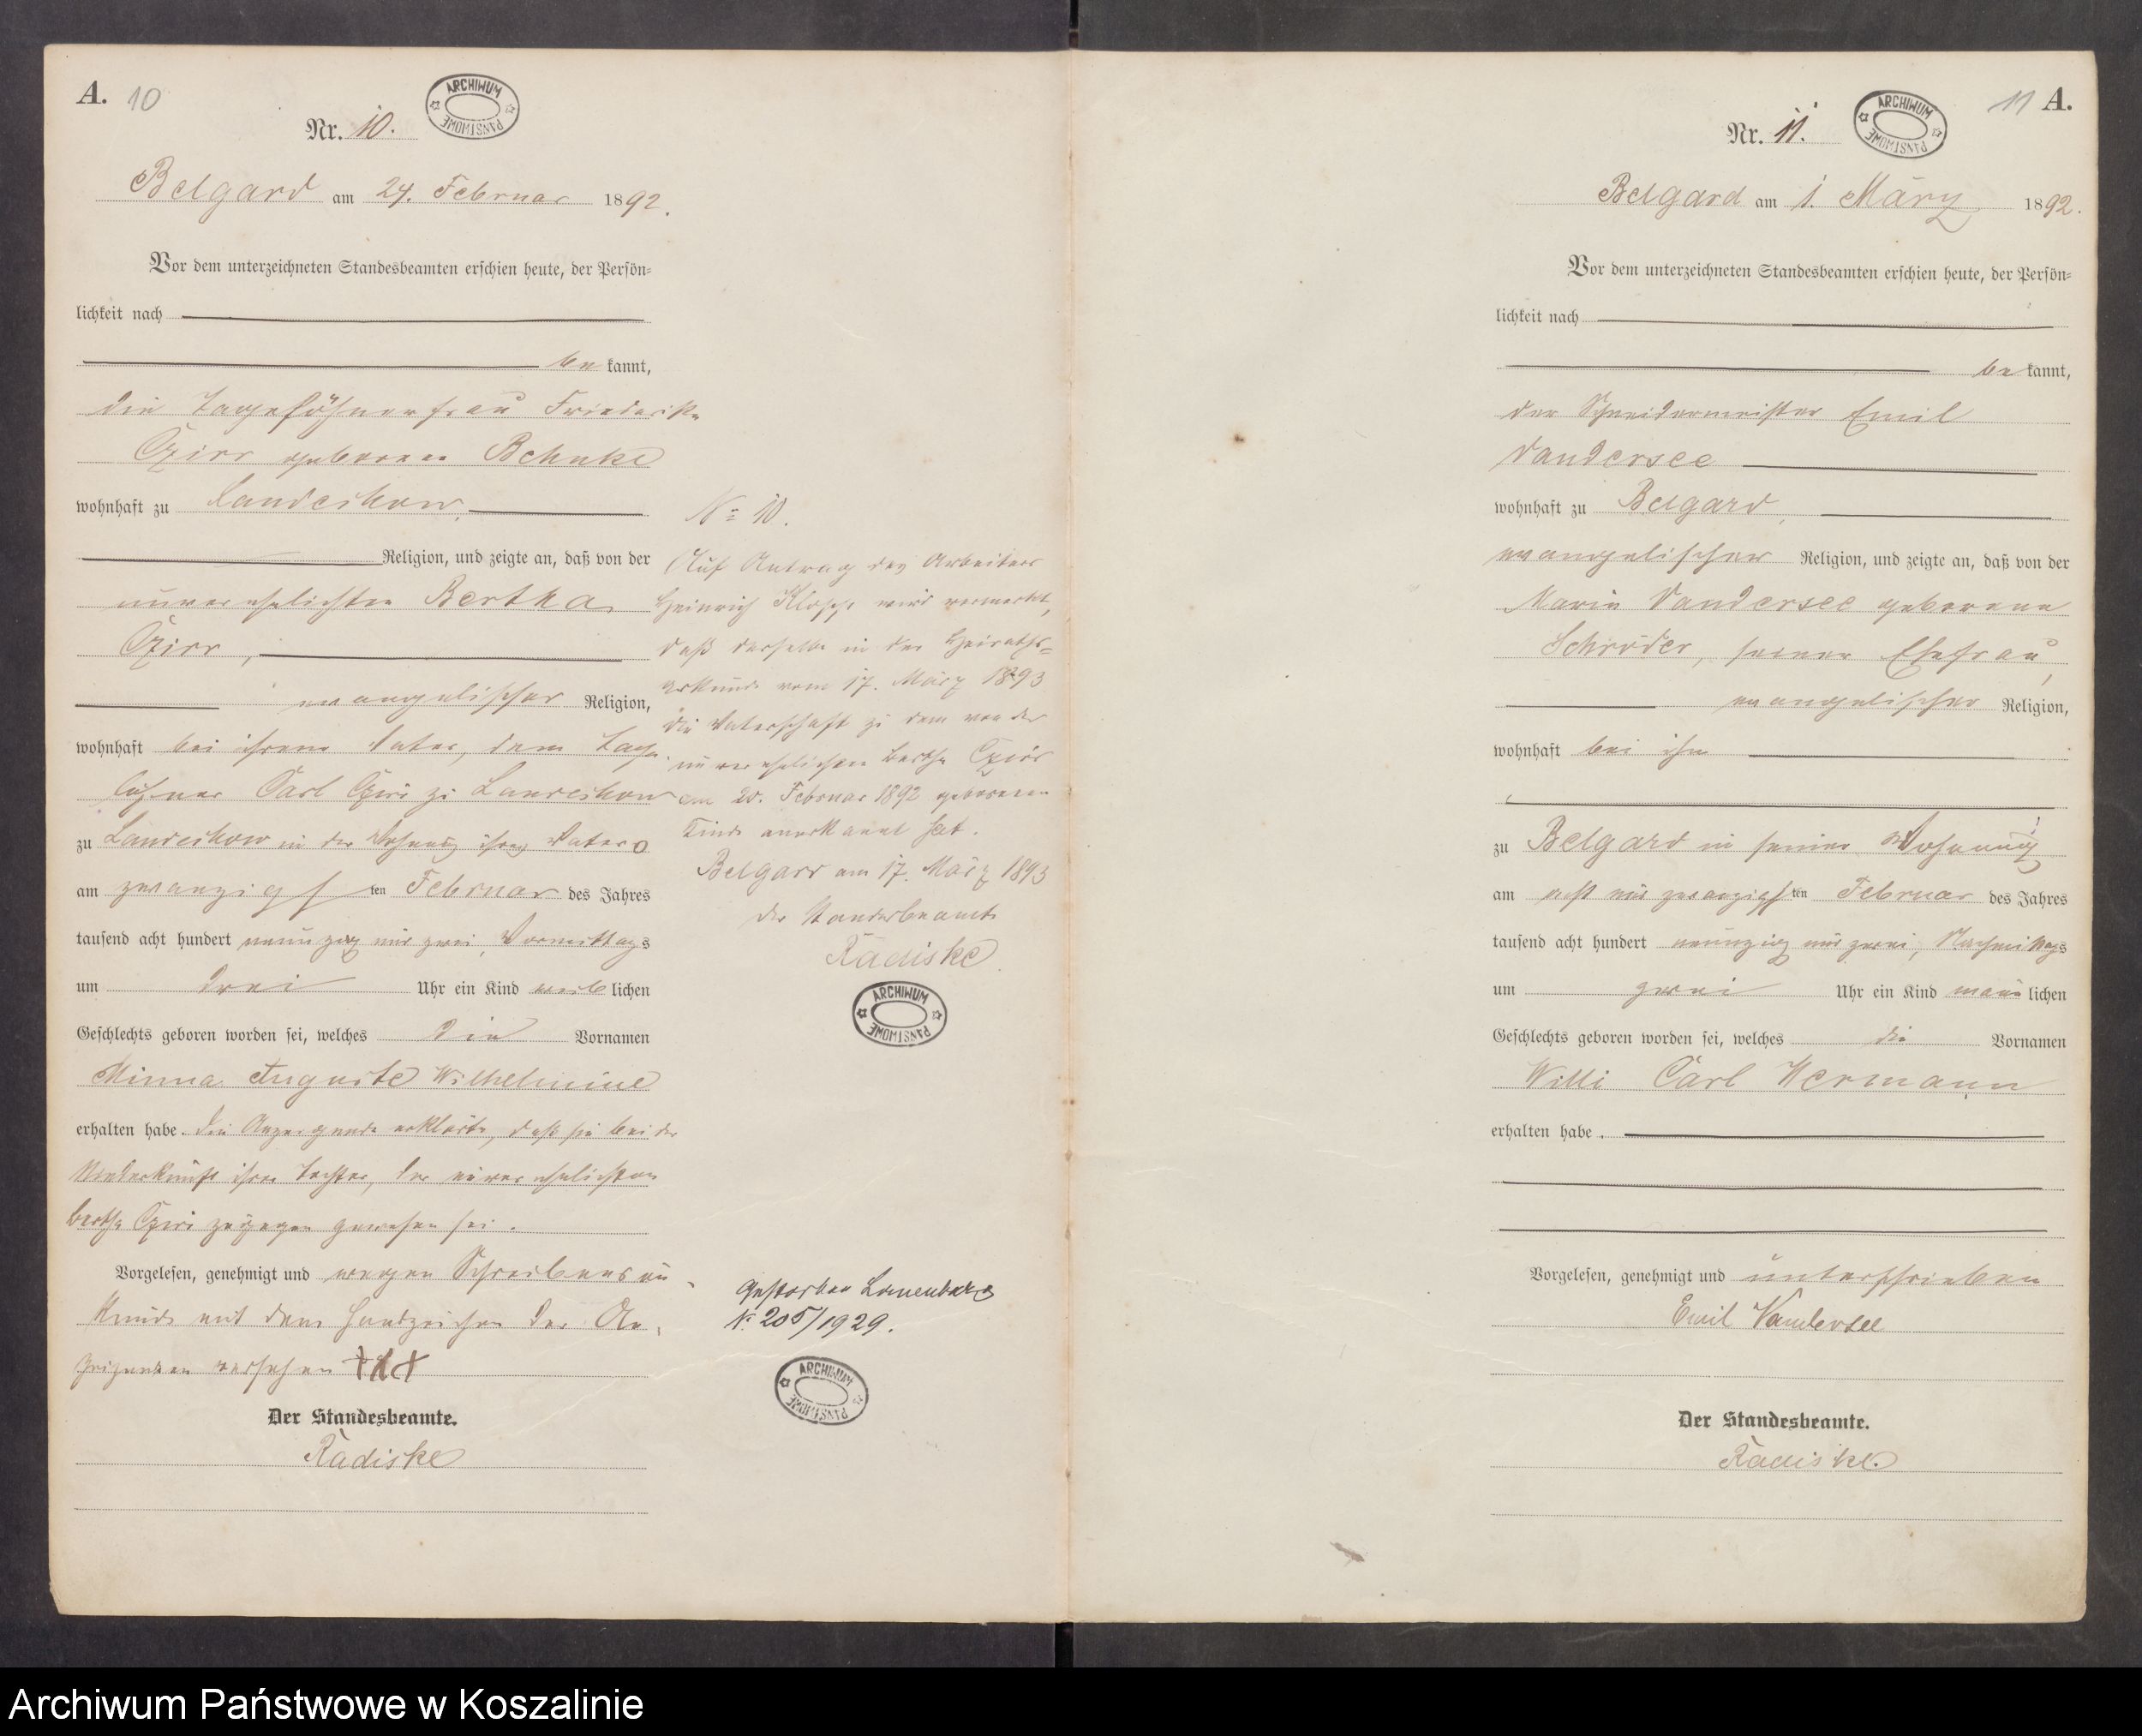 A. 10
Nr. 10.
ARCHIWUM PAŃSTWOWE
Belgard am 24. Februar 1892.
Vor dem unterzeichneten Standesbeamten erschien heute, der Persön=
lichkeit nach
be kannt,
die Tagelöhnerfrau Friederike
Czirr geborene Behnke
wohnhaft zu Landeckow,
Religion, und zeigte an, daß von der
unverehelichten Bertha
Czirr,
evangelischer Religion,
wohnhaft bei ihrem Vater, dem Tage
löhner Carl Czirr zu Landeckow
zu Landeckow in der Wohnung ihres Vaters
am zwanzigsten Februar des Jahres
tausend acht hundert neunzig und zwei, Vormittags
um drei Uhr ein Kind weiblichen
Geschlechts geboren worden sei, welches die Vornamen
Minna Auguste Wilhelmine
erhalten habe. Die Anzeigende erklärte, daß sie bei der
Niederkunft ihrer Tochter, der unverehelichten
Bertha Czirr zugegen gewesen sei.
Vorgelesen, genehmigt und wegen Schreibensun
kunde mit dem Handzeichen der An
zeigenden versehen +++
Der Standesbeamte.
Radiske
No 10.
Auf Antrag des Arbeiters
Heinrich Klopp wird vermerkt,
daß derselbe in der Heiraths=
urkunde vom 17. März 1893
die Vaterschaft zu dem von der
unverehelichten Bertha Czirr
am 20. Februar 1892 geborenen
Kinde anerkannt hat.
Belgard am 17. März 1893
Der Standesbeamte
Radiske
ARCHIWUM PAŃSTWOWE
Gestorben Lauenburg
N. 205/1929.
ARCHIWUM PAŃSTWOWE
11 A.
Nr. 11.
ARCHIWUM PAŃSTWOWE
Belgard am 1. März 1892.
Vor dem unterzeichneten Standesbeamten erschien heute, der Persön=
lichkeit nach
be kannt,
der Schneidermeister Emil
Vandersee
wohnhaft zu Belgard,
evangelischer Religion, und zeigte an, daß von der
Marie Vandersee geborene
Schröder, seiner Ehefrau,
evangelischer Religion,
wohnhaft bei ihm
zu Belgard in seiner Wohnung
am acht und zwanzigsten Februar des Jahres
tausend acht hundert neunzig und zwei, Nachmittags
um zwei Uhr ein Kind männlichen
Geschlechts geboren worden sei, welches die Vornamen
Willi Carl Hermann
erhalten habe.
Vorgelesen, genehmigt und unterschrieben
Emil Vandersee
Der Standesbeamte.
Radiske.
Archiwum Państwowe w Koszalinie